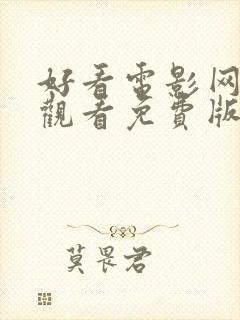 好看电影网
觀看免費版
莫畏君